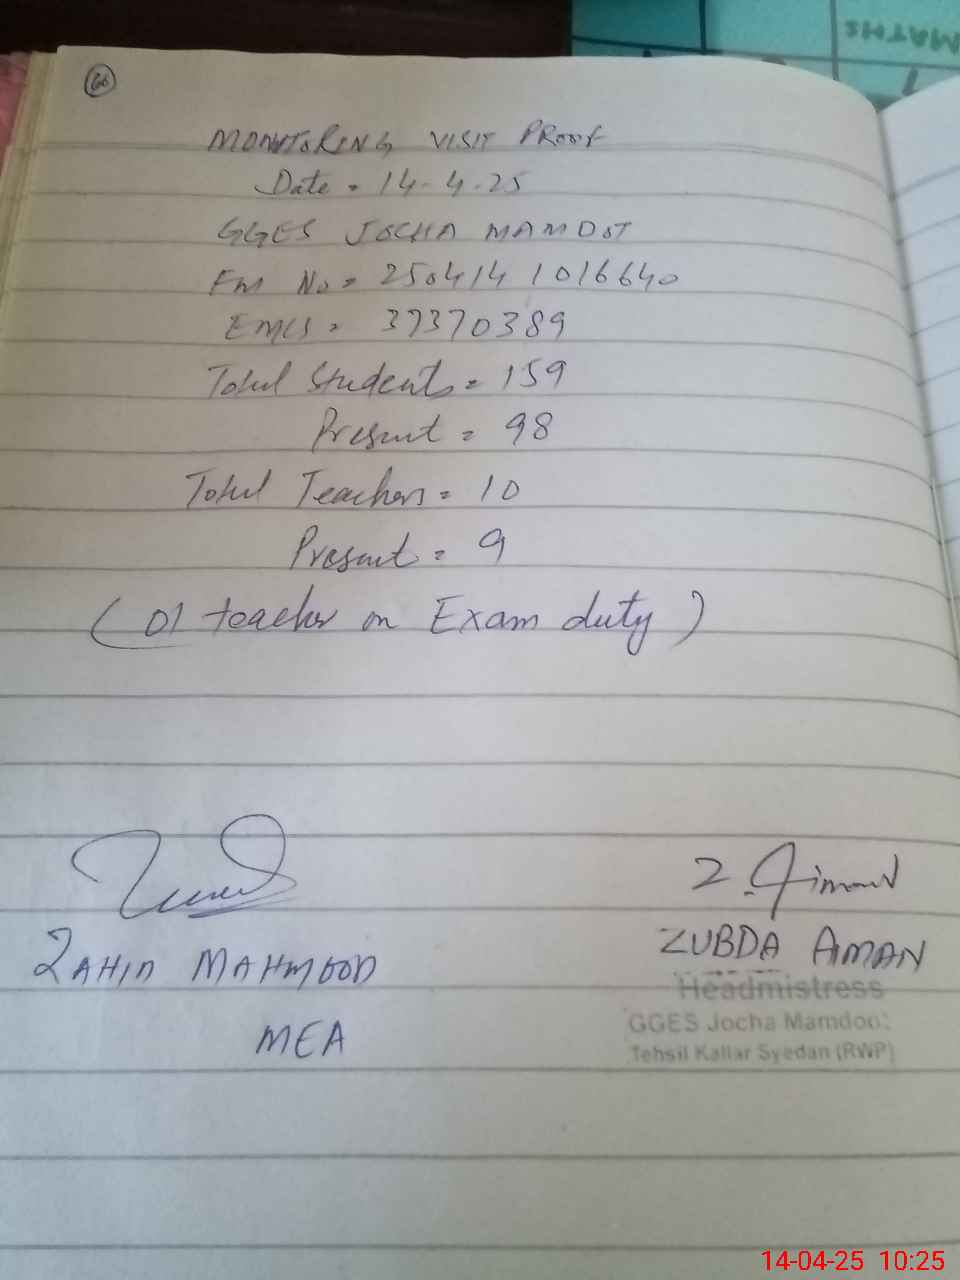 66
MATHS
MONITORING VISIT PROOF
Date = 14-4-25
GGES JOCHA MAMDOT
Fm No = 250414 1016640
EMIS = 37370389
Total Students = 159
Present = 98
Total Teachers = 10
Present = 9
(01 teacher on Exam duty)
Z. Aiman
ZAHID MAHMOOD
ZUBDA AIMAN
MEA
Headmistress
GGES Jocha Mamdoot
Tehsil Kallar Syedan (RWP)
14-04-25 10:25